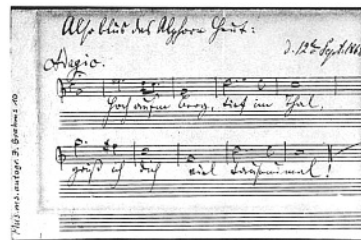 Also blus das Alphorn heut:
d. 12ten Sept. 186
Adagio.
Hoch aufm Berg, tief im Thal,
grüß ich dich viel tausendmal!
Mus. ms. autogr. J. Brahms 10